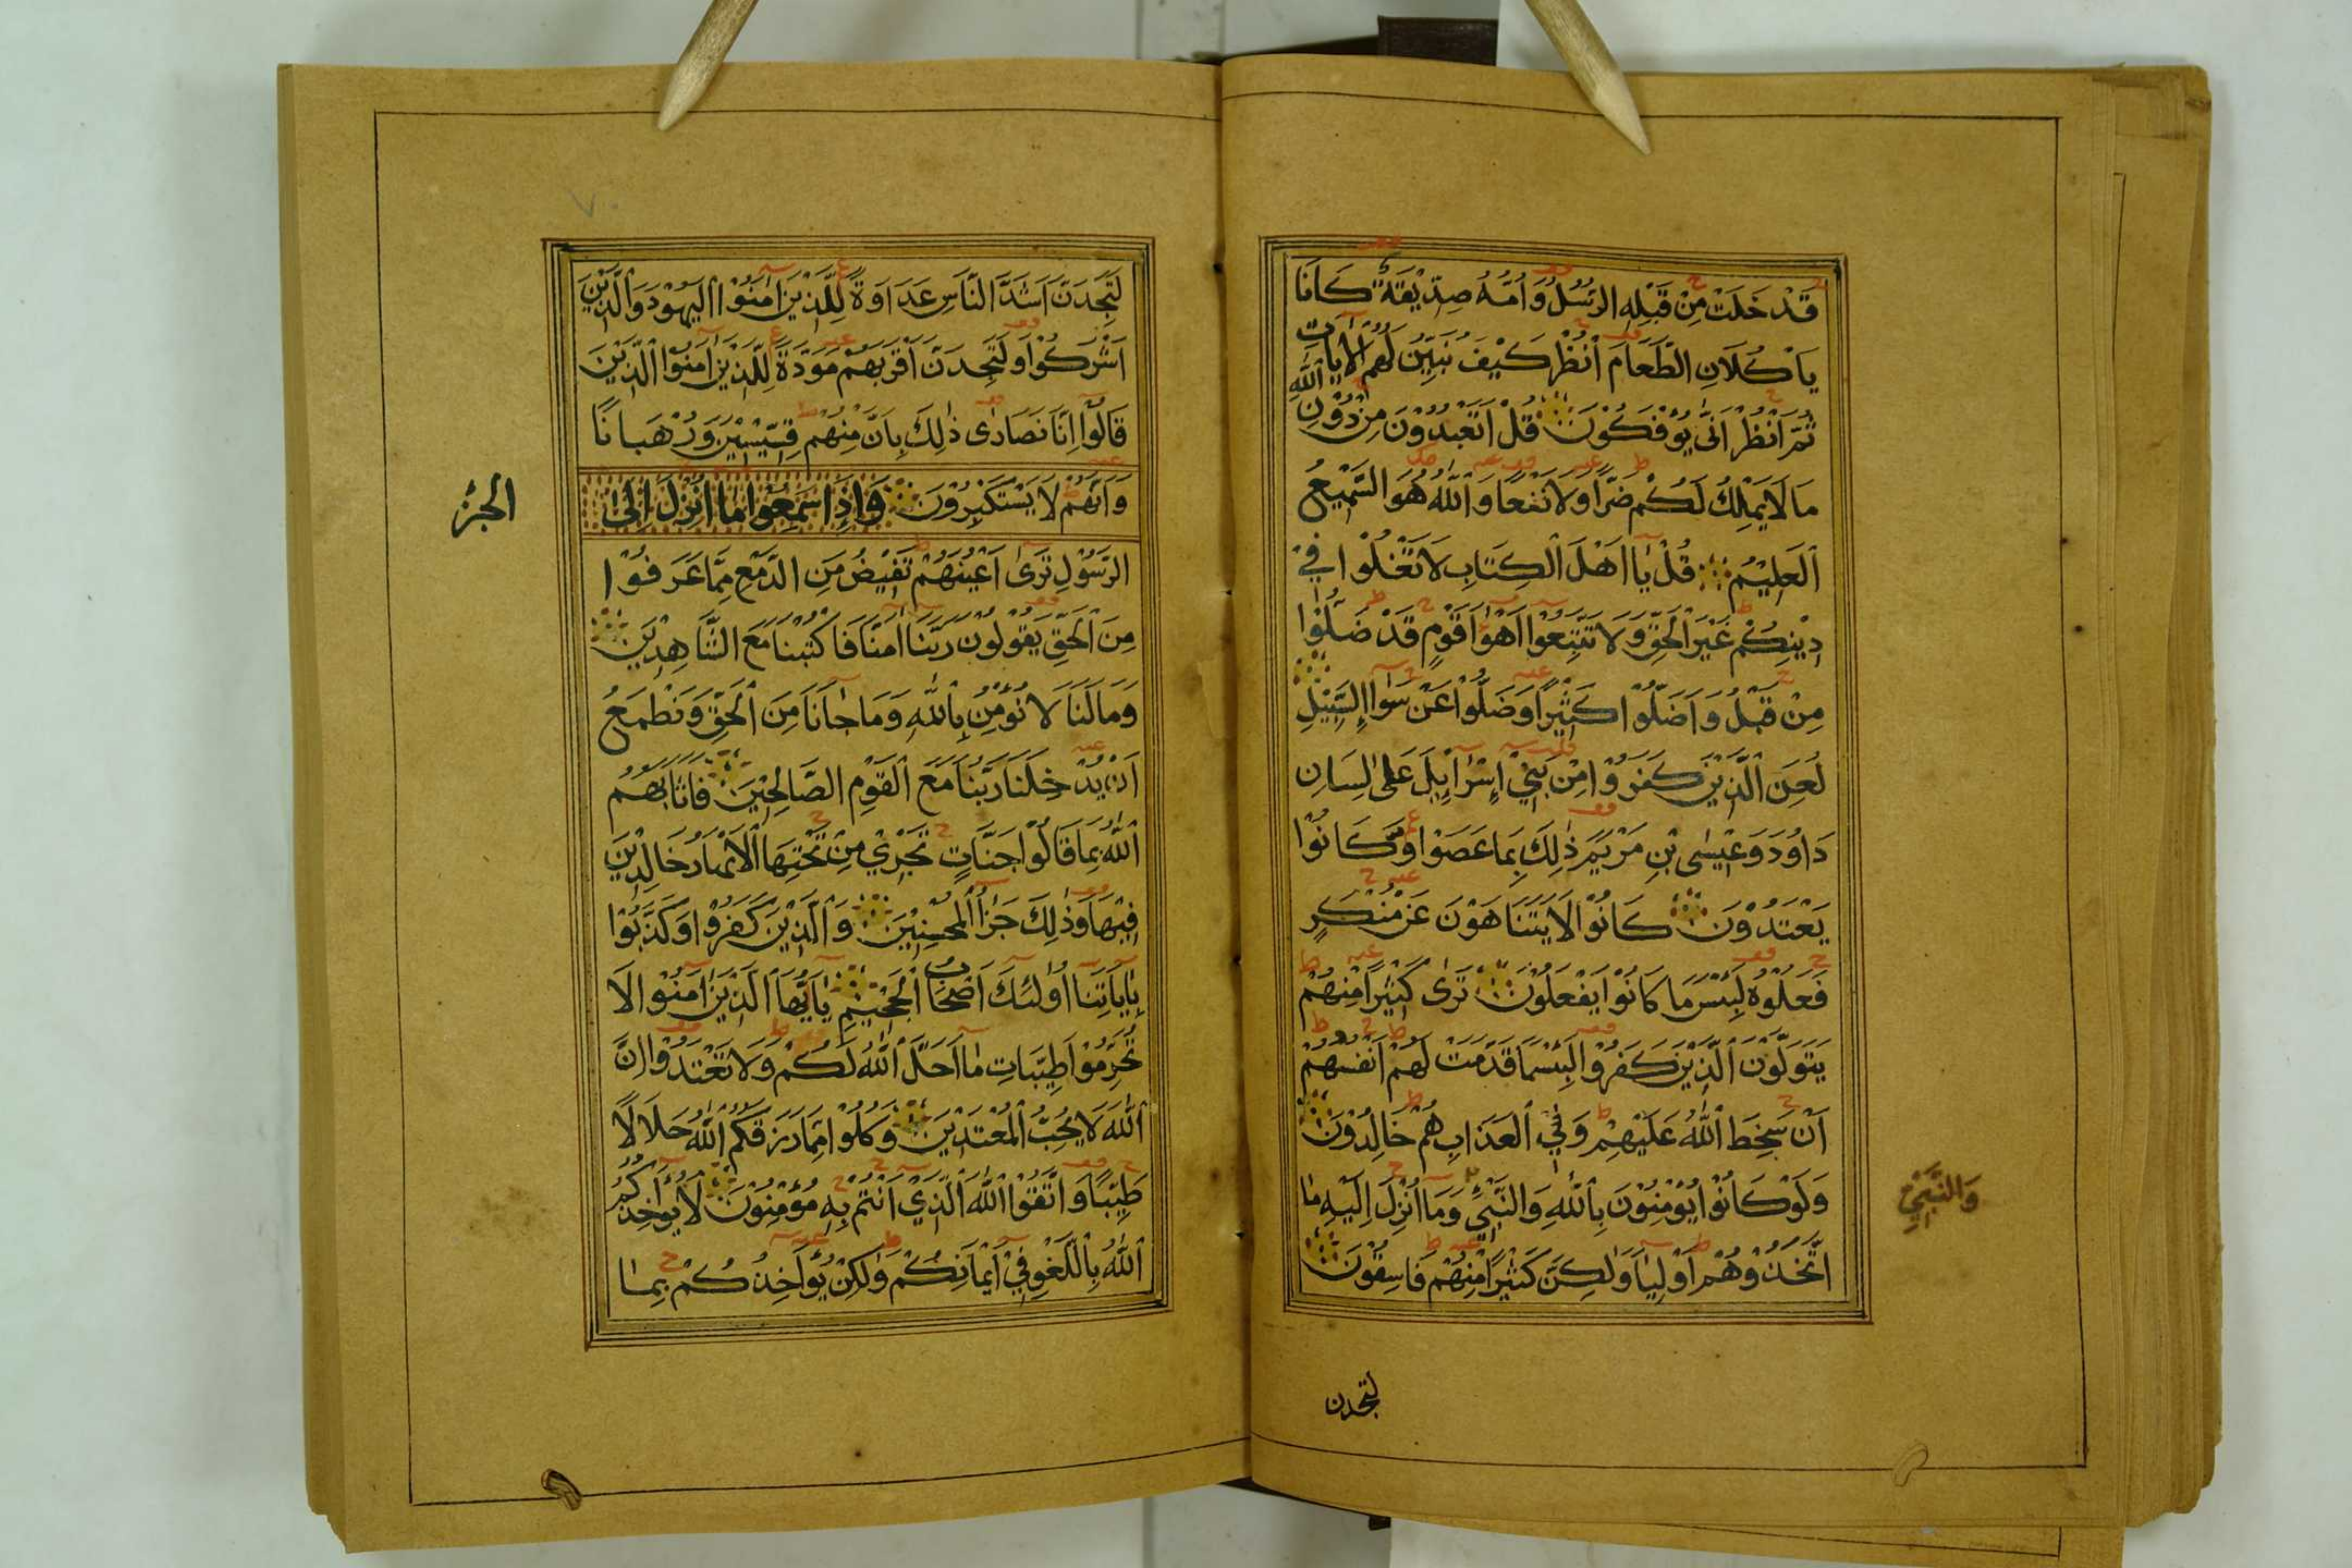 قَدْ خَلَتْ مِنْ قَبْلِهِ الرُّسُلُ وَاُمُّهُ صِدِّيْقَةٌ كَانَا
يَاْكُلَانِ الطَّعَامَ اُنْظُرْ كَيْفَ نُبَيِّنُ لَهُمُ الْاٰيَاتِ
ثُمَّ انْظُرْ اَنّٰى يُؤْفَكُوْنَ قُلْ اَتَعْبُدُوْنَ مِنْ دُوْنِ اللّٰهِ
مَا لَا يَمْلِكُ لَكُمْ ضَرًّا وَلَا نَفْعًا وَاللّٰهُ هُوَ السَّمِيْعُ
الْعَلِيْمُ قُلْ يَا اَهْلَ الْكِتَابِ لَا تَغْلُوْا فِيْ
دِيْنِكُمْ غَيْرَ الْحَقِّ وَلَا تَتَّبِعُوْا اَهْوَا قَوْمٍ قَدْ ضَلُّوْا
مِنْ قَبْلُ وَاَضَلُّوْا كَثِيْرًا وَضَلُّوْا عَنْ سَوَا السَّبِيْلِ
لُعِنَ الَّذِيْنَ كَفَرُوْا مِنْ بَنِيْ اِسْرَايِلَ عَلٰى لِسَانِ
دَاوُدَ وَعِيْسٰى بْنِ مَرْيَمَ ذٰلِكَ بِمَا عَصَوْا وَكَانُوْا
يَعْتَدُوْنَ كَانُوْا لَا يَتَنَاهَوْنَ عَنْ مُنْكَرٍ
فَعَلُوْهُ لَبِئْسَ مَا كَانُوْا يَفْعَلُوْنَ تَرٰى كَثِيْرًا مِنْهُمْ
يَتَوَلَّوْنَ الَّذِيْنَ كَفَرُوْا لَبِئْسَمَا قَدَّمَتْ لَهُمْ اَنْفُسُهُمْ
اَنْ سَخِطَ اللّٰهُ عَلَيْهِمْ وَفِي الْعَذَابِ هُمْ خَالِدُوْنَ
وَلَوْ كَانُوْا يُؤْمِنُوْنَ بِاللّٰهِ وَالنَّبِيِّ وَمَا اُنْزِلَ اِلَيْهِ مَا
وَالنَّبِيِّ
اتَّخَذُوْهُمْ اَوْلِيَا وَلٰكِنَّ كَثِيْرًا مِنْهُمْ فَاسِقُوْنَ
لتجدن
لَتَجِدَنَّ اَشَدَّ النَّاسِ عَدَاوَةً لِلَّذِيْنَ اٰمَنُوْا الْيَهُوْدَ وَالَّذِيْنَ
اَشْرَكُوْا وَلَتَجِدَنَّ اَقْرَبَهُمْ مَوَدَّةً لِلَّذِيْنَ اٰمَنُوْا الَّذِيْنَ
قَالُوْا اِنَّا نَصَارٰى ذٰلِكَ بِاَنَّ مِنْهُمْ قِسِّيْسِيْنَ وَرُهْبَانًا
وَاَنَّهُمْ لَا يَسْتَكْبِرُوْنَ وَاِذَا سَمِعُوْا مَا اُنْزِلَ اِلَى
الجزء
الرَّسُوْلِ تَرٰى اَعْيُنَهُمْ تَفِيْضُ مِنَ الدَّمْعِ مِمَّا عَرَفُوْا
مِنَ الْحَقِّ يَقُوْلُوْنَ رَبَّنَا اٰمَنَّا فَاكْتُبْنَا مَعَ الشَّاهِدِيْنَ
وَمَا لَنَا لَا نُؤْمِنُ بِاللّٰهِ وَمَا جَانَا مِنَ الْحَقِّ وَنَطْمَعُ
اَنْ يُدْخِلَنَا رَبُّنَا مَعَ الْقَوْمِ الصَّالِحِيْنَ فَاَثَابَهُمُ
اللّٰهُ بِمَا قَالُوْا جَنَّاتٍ تَجْرِيْ مِنْ تَحْتِهَا الْاَنْهَارُ خَالِدِيْنَ
فِيْهَا وَذٰلِكَ جَزَا الْمُحْسِنِيْنَ وَالَّذِيْنَ كَفَرُوْا وَكَذَّبُوْا
بِاٰيَاتِنَا اُولٰئِكَ اَصْحَابُ الْجَحِيْمِ يَا اَيُّهَا الَّذِيْنَ اٰمَنُوْا لَا
تُحَرِّمُوْا طَيِّبَاتِ مَا اَحَلَّ اللّٰهُ لَكُمْ وَلَا تَعْتَدُوْا اِنَّ
اللّٰهَ لَا يُحِبُّ الْمُعْتَدِيْنَ وَكُلُوْا مِمَّا رَزَقَكُمُ اللّٰهُ حَلَالًا
طَيِّبًا وَاتَّقُوْا اللّٰهَ الَّذِيْ اَنْتُمْ بِهِ مُؤْمِنُوْنَ لَا يُؤَاخِذُكُمُ
اللّٰهُ بِاللَّغْوِ فِيْ اَيْمَانِكُمْ وَلٰكِنْ يُؤَاخِذُكُمْ بِمَا